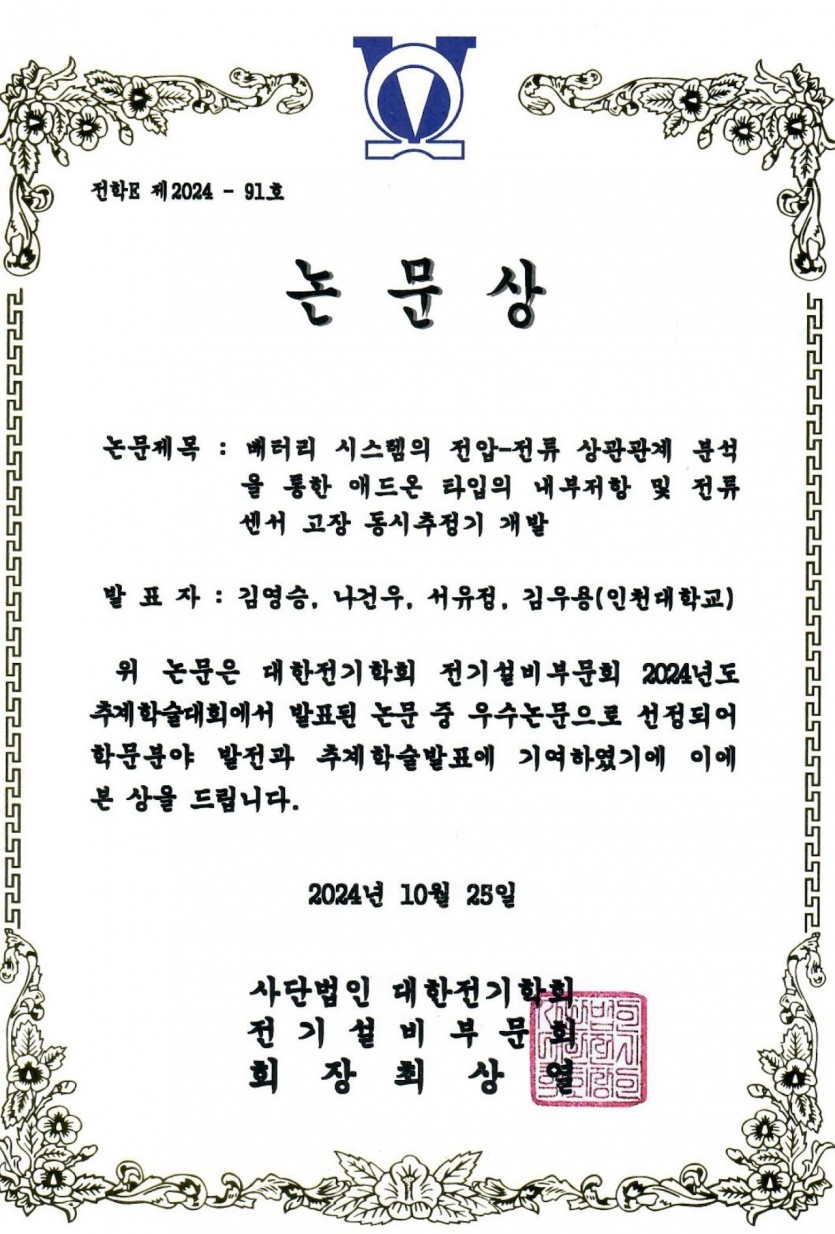 전학E 제2024 - 91호
논 문 상
논문제목 : 배터리 시스템의 전압-전류 상관관계 분석
을 통한 애드온 타입의 내부저항 및 전류
센서 고장 동시추정기 개발
발 표 자 : 김영승, 나건우, 서유정, 김우용(인천대학교)
위 논문은 대한전기학회 전기설비부문회 2024년도
추계학술대회에서 발표된 논문 중 우수논문으로 선정되어
학문분야 발전과 추계학술발표에 기여하였기에 이에
본 상을 드립니다.
2024년 10월 25일
사단법인 대한전기학회
전 기 설 비 부 문 회
회 장 최 상 열